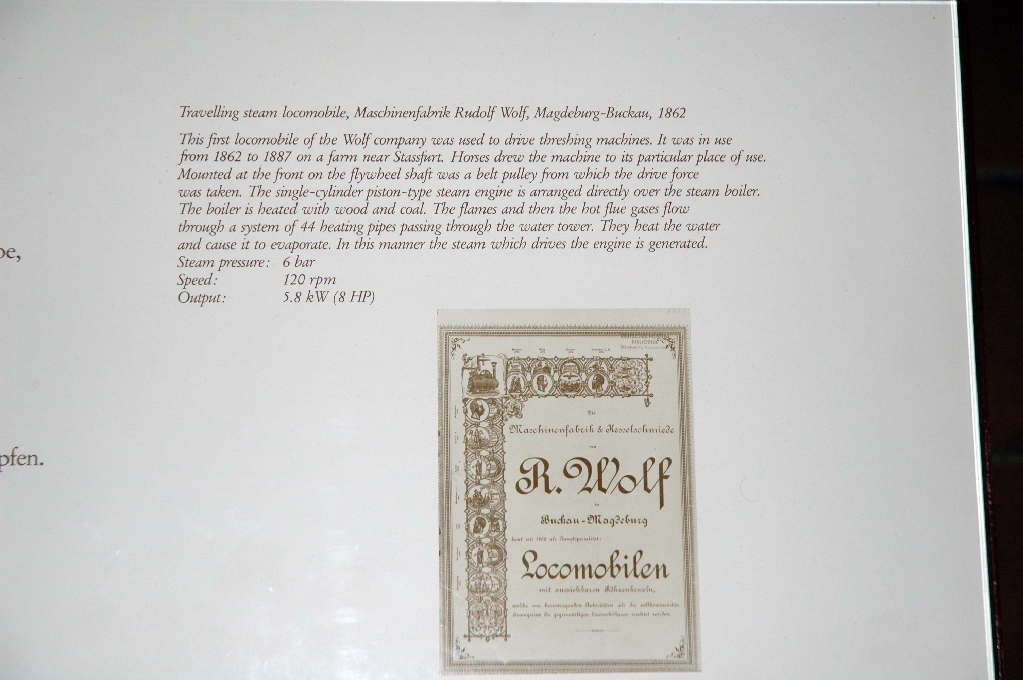 Travelling steam locomobile, Maschinenfabrik Rudolf Wolf, Magdeburg-Buckau, 1862
This first locomobile of the Wolf company was used to drive threshing machines. It was in use
from 1862 to 1887 on a farm near Stassfurt. Horses drew the machine to its particular place of use.
Mounted at the front on the flywheel shaft was a belt pulley from which the drive force
was taken. The single-cylinder piston-type steam engine is arranged directly over the steam boiler.
The boiler is heated with wood and coal. The flames and then the hot flue gases flow
through a system of 44 heating pipes passing through the water tower. They heat the water
and cause it to evaporate. In this manner the steam which drives the engine is generated.
Steam pressure: 6 bar
Speed: 120 rpm
Output: 5.8 kW (8 HP)
pfen.
Die
Maschinenfabrik & Kesselschmiede
von
R. Wolf
in
Buckau-Magdeburg
baut seit 1862 als Hauptspecialität:
Locomobilen
mit ausziehbaren Röhrenkesseln,